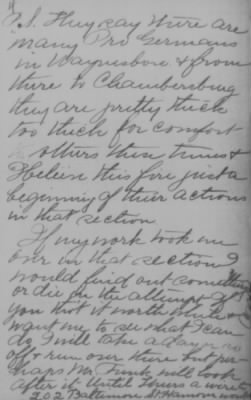 P.S. They say there are
many Pro Germans
in Waynesboro & from
there to Chambersburg
they are pretty thick
too thick for comfort
others these times &
I believe this fire just a
beginning of their actions
in that section
If my work took me
over in that section I
would find out something
or die in the attempt. If
you think it worth while &
want me to see what I can
do I will take a day or so
off & run over there but per
haps Mr. Funk will look
after it. Until I hears a wire
202 Baltimore St. Hanover